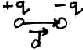 +q -q
d⃗